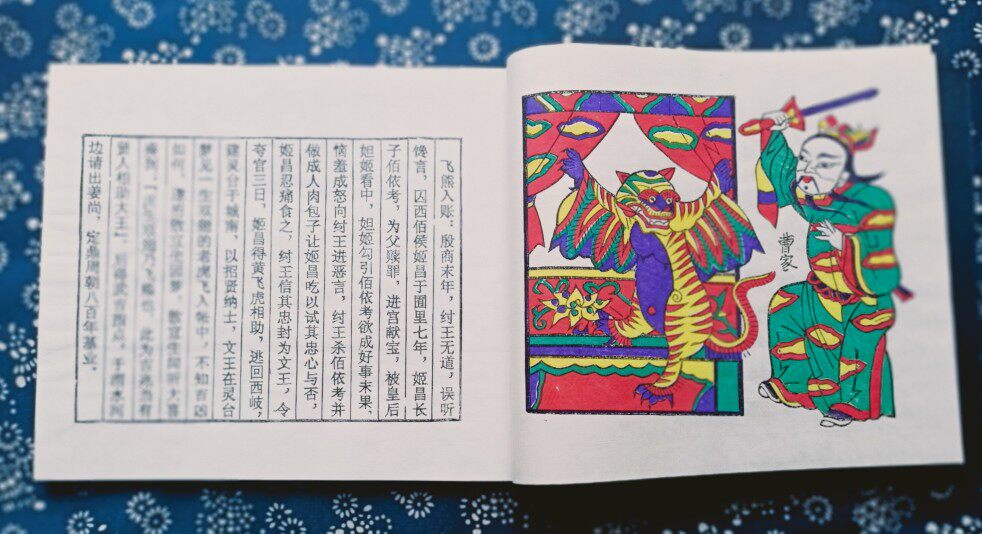 飞熊入账：殷商末年，纣王无道，误听
馋言，囚西佰侯姬昌于囿里七年，姬昌长
子佰依考，为父赎罪，进宫献宝，被皇后
妲姬看中，妲姬勾引佰依考欲成好事未果，
恼羞成怒向纣王进恶言，纣王杀佰依考并
做成人肉包子让姬昌吃以试其忠心与否，
姬昌忍痛食之，纣王信其忠封为文王，令
夸官三日，姬昌得黄飞虎相助，逃回西岐，
建灵台于城南，以招贤纳士，文王在灵台
梦见一生双翅的老虎飞入帐中，不知吉凶
如何，
贤人相助大王”，
边请出姜尚，定周朝八百年基业。
曹家